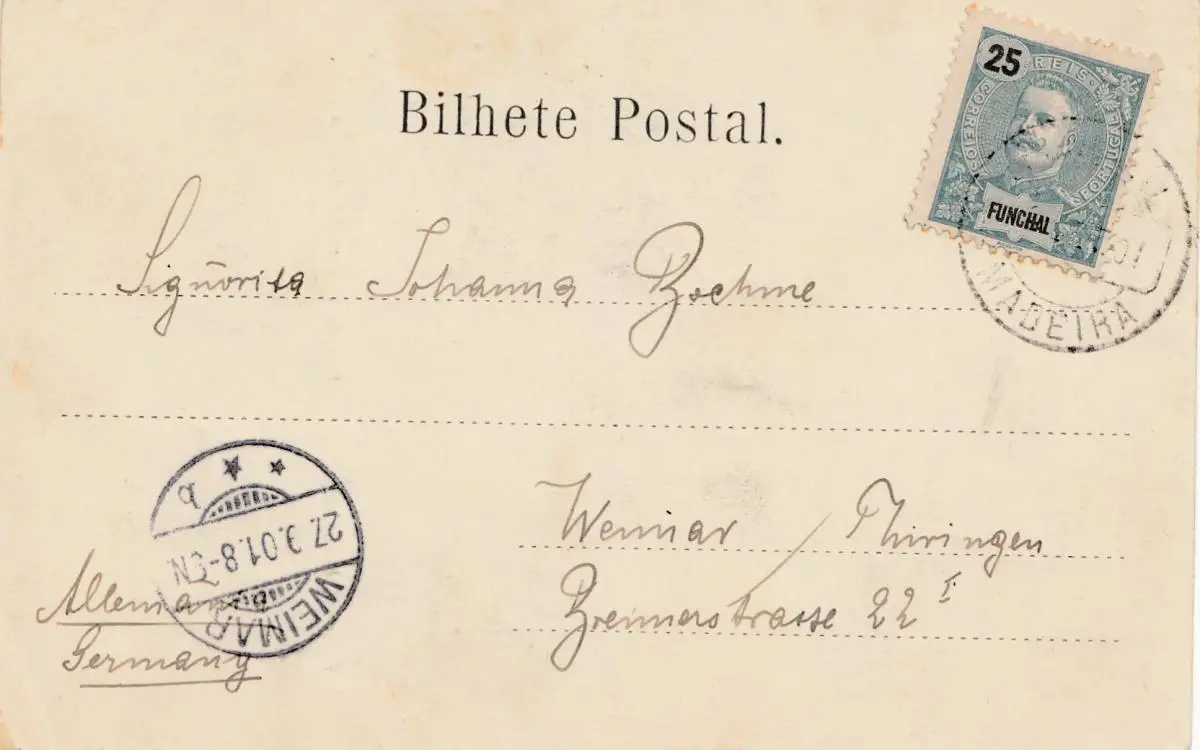 Bilhete Postal.
25
REIS
CORREIOS
PORTUGAL
FUNCHAL
MADEIRA
Signorita Johanna Boehme
Weimar / Thüringen
22 I
Germany
27.3.01.8-9N.
WEIMAR
a